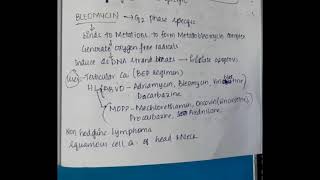 BLEOMYCIN → G2 Phase specific
binds to Metal ions to form Metallobleomycin complex
Generate oxygen free radicals
Induce DNA strand breaks → apoptosis
Use Testicular Ca (BEP Regimen)
HL ABVD - Adriamycin, Bleomycin, Vinblastine
Dacarbazine
MOPP - Mechlorethamin, Oncovin (Vincristine),
Procarbazine, Prednisolone
Non hodgkins lymphoma
Squamous cell Ca of head & Neck